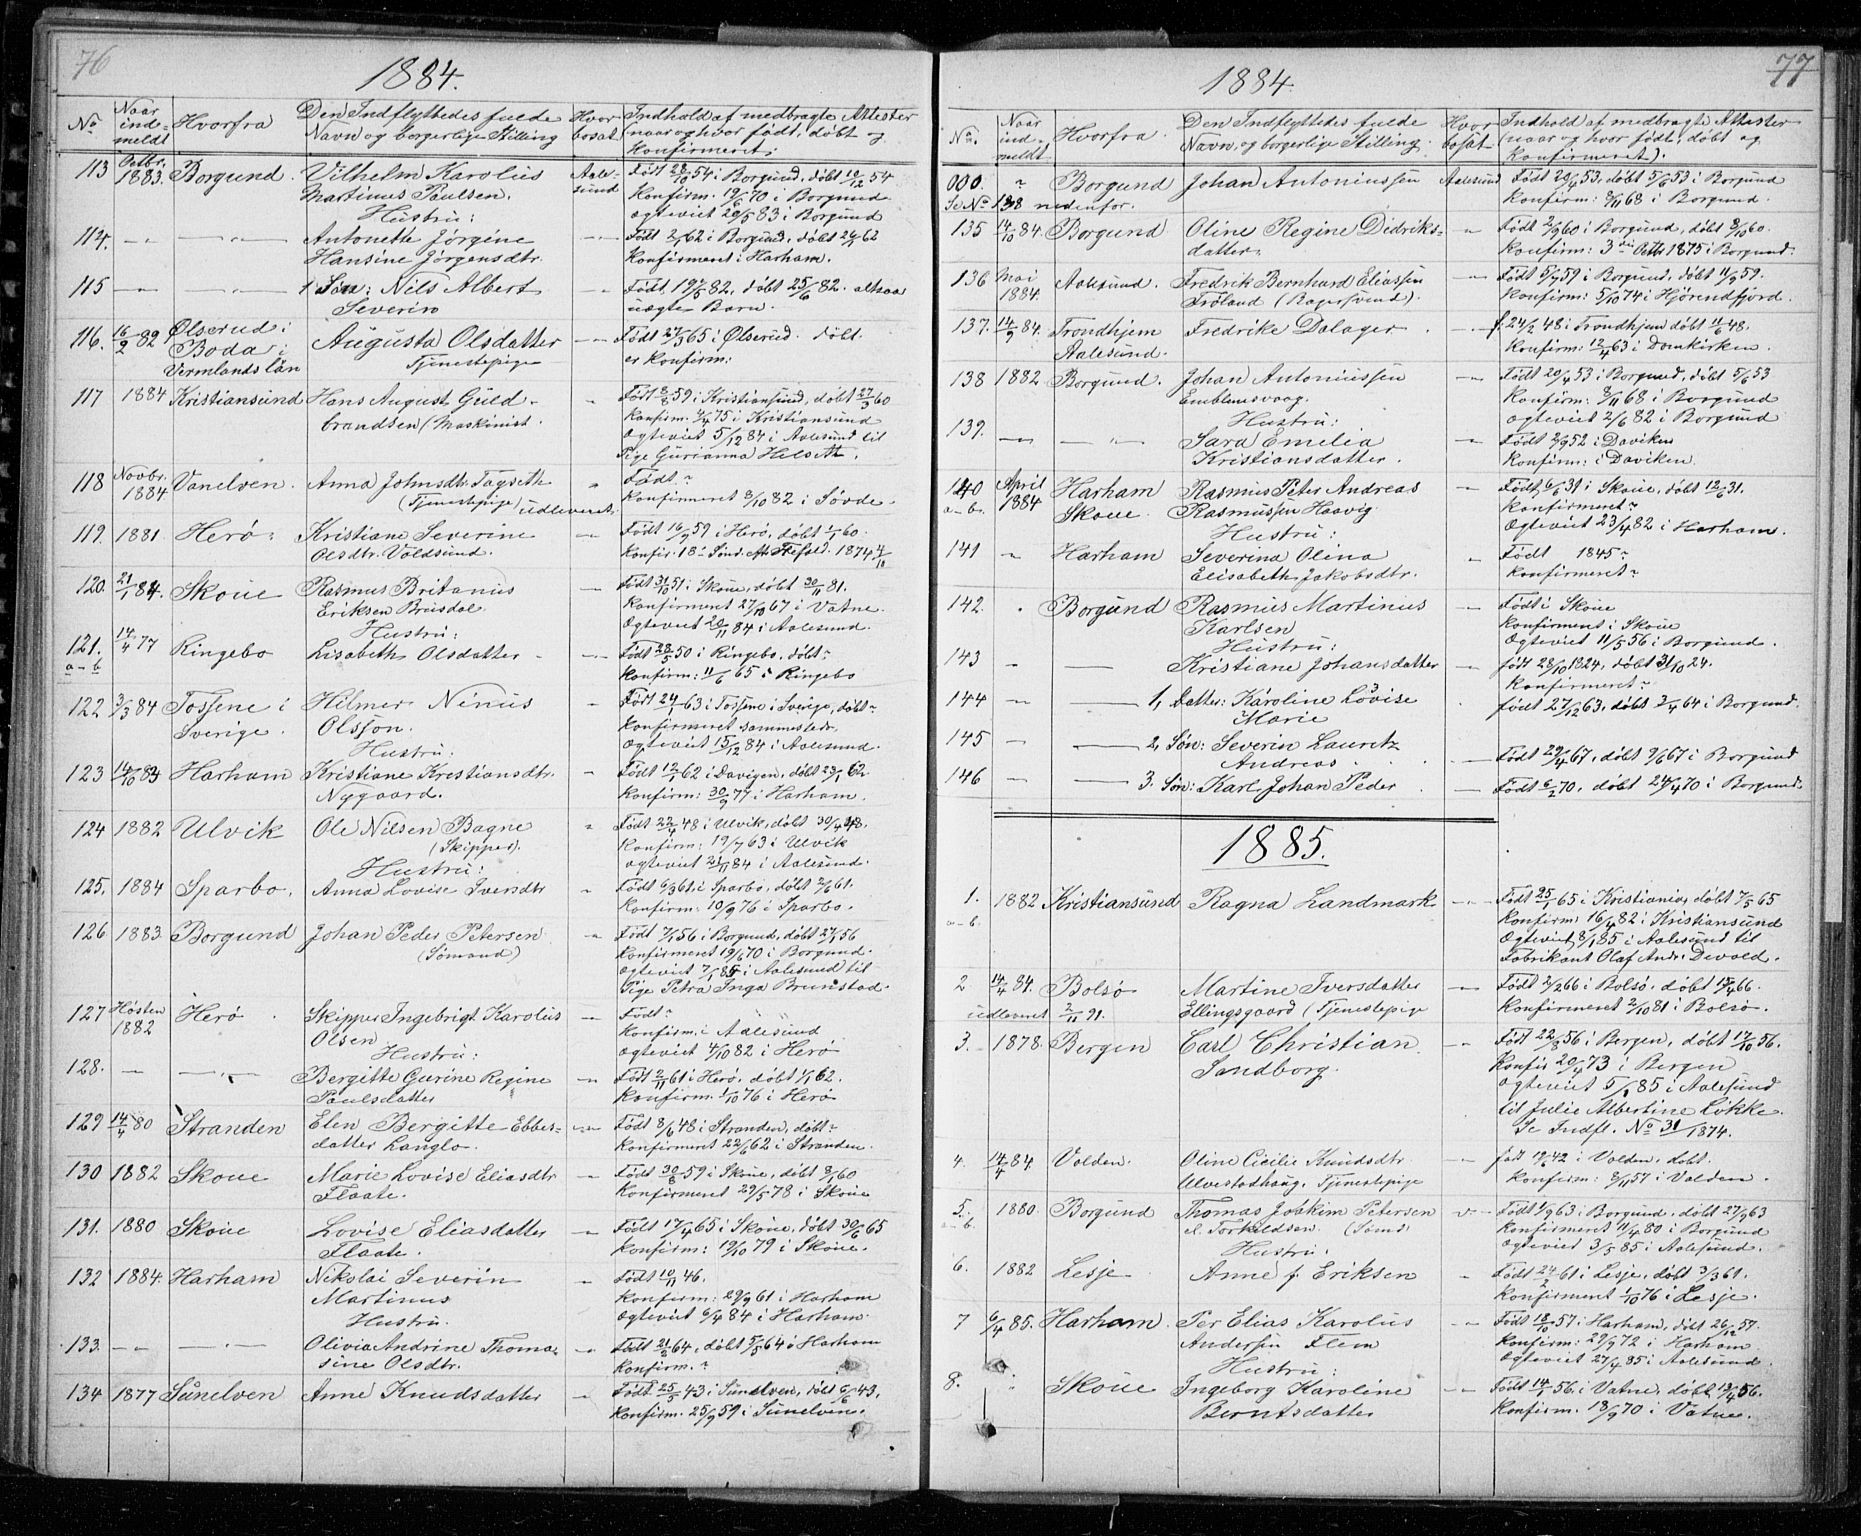 76
1884.
No
Naar inde- meldt
Hvorfra
Den Indflyttedes fulde Navn og borgerlige Stilling
Hvor bosat
Indhold af medbragte Attester (naar og hvor født, døbt og konfirmeret.
113 Octbr. 1883. Borgund. Vilhelm Karolus Aale- Født 28/10 54 i Borgund, døbt 10/12 54
Martinus Paulsen. sund Konfirm. 19/6 70 i Borgund
Hustru: Ogteviet 20/5 83 i Borgund
114. Antonette Jørgine Født 2/1 62 i Borgund, døbt 24/1 62
Hansine Jørgensdtr. Konfirmeret i Harham.
115 1 Søn: Nils Albert Født 19/5 82, døbt 25/6 82. altsaa
Severin uægte Barn.
116. 16/2 82 Ølserud i Augusta Olsdatter Født 27/3 65 i Ølserud. døbt.
Boda i Tjenestepige er konfirm:
Vermlands län
117 1884 Kristiansund Hans August Guld- Født 18/8 59 i Kristiansund, døbt 27/3 60
brandsen (Maskinist. Konfirm: 4/4 75 i Kristiansund
Ogteviet 5/12 84 i Aalesund til
Pige Gurianna Helseth.
118 Novbr. 1884 Vanelven. Anna Johnsdtr. Tagseth Født "
(Tjenestepige) udleveret. Konfirmeret 8/10 82 i Søvde.
119. 1881 Herø. Kristiane Severine Født 16/9 59 i Herø, døbt 1/1 60.
Olsdtr. Voldsund. Konfir. 18de Sønd. Aft. Trefold. 1874 4/10
120. 21/1 84. Skoue Rasmus Britanus Født 31/10 51 i Skoue, døbt 30/11 81.
Eriksen Brusdal. Konfirmeret 27/10 67 i Vatne.
Hustru: Ogteviet 20/11 84 i Aalesund.
121. a-b 14/4 77 Ringebo Lisabeth Olsdatter Født 28/5 50 i Ringebo, døbt "
Konfirm: 11/6 65 i Ringebo
122 3/3 84 Tossene i Hilmer Ninus Født 24/1 63 i Tossene i Sverige, døbt "
Sverige. Olsson. Konfirmeret sammesteds.
Hustru: Ogteviet 15/12 84 i Aalesund.
123 14/10 83 Harham Kristiane Kristiansdtr. Født 12/1 62 i Davigen, døbt 23/1 62
Nygaard. Konfirm: 30/9 77 i Harham.
124 1882 Ulvik Ole Nilsen Bagne Født 22/4 48 i Ulvik, døbt 30/4 48.
(Skipper). Konfirm: 19/7 63 i Ulvik
Hustru: Ogteviet 21/11 84 i Aalesund.
125. 1884 Sparbo. Anna Lovise Iversdtr Født 6/3 61 i Sparbo, døbt 2/6 61.
Konfirm: 10/9 76 i Sparbo.
126 1883 Borgund Johan Peder Petersen Født 7/1 56 i Borgund, døbt 27/1 56
(Sømand) Konfirmeret 19/6 70 i Borgund.
Ogteviet 7/1 85 i Aalesund til
Pige Petra Inga Brunstad.
127 Høsten 1882 Herø Skipper Ingebrigt Karolus Født "
Olsen Konfirm. i Aalesund
Hustru: Ogteviet 4/10 82 i Herø
128. Bergitte Gurine Regine Født 2/11 61 i Herø, døbt 1/1 62.
Paulsdatter Konfirm. 1/10 76 i Herø
129 14/4 80 Stranden Elen Bergitte Ebbes- Født 8/6 48 i Stranden, døbt "
datter Langlo. Konfirmeret 22/6 62 i Stranden.
130 1882 Skoue Marie Lovise Eliasdtr Født 30/8 59 i Skoue, døbt 8/1 60
Flaate. Konfirmeret 29/5 78 i Skoue
131. 1880 Skoue Lovise Eliasdatter Født 17/4 65 i Skoue, døbt 30/6 65
Flaate. Konfirm: 19/10 79 i Skoue.
132 1884. Harham Nikolai Severin Født 10/11 46.
Martinus Konfirm: 29/9 61 i Harham
Hustru. Ogteviet 6/4 84 i Harham.
133. Olivia Andrine Thoma- Født 21/2 64, døbt 5/5 64 i Harham
sine Olsdtr. Konfirm. "
134 1877 Sunelven Anne Knudsdatter Født 25/5 43 i Sunelven, døbt 6/6 43.
Konfirm. 25/9 59 i Sunelven.
77
1884
No.
Naar ind- meldt
Hvorfra
Den Indflyttedes fulde Navn, og borgerlige Stilling.
Hvor bosat
Indhold af medbragte Attester (naar og hvor født, døbt og konfirmeret).
000. " Borgund Johan Antoniussen Aalesund Født 20/4 53, døbt 5/6 53 i Borgund
Se No 138 nedenfor. Konfirm: 8/11 68 i Borgund.
135 14/10 84. Borgund Oline Regine Didriks- Født 2/9 60 i Borgund, døbt 8/10 60.
datter. Konfirm: 3die Octbr 1875 i Borgund.
136 Mai 1884. Aalesund. Fredrik Bernhard Eliassen Født 5/7 59 i Borgund, døbt 11/9 59.
Frøland (Ragersvend). Konfirm: 5/10 74 i Hjørendfjord.
137. 14/9 84. Trondhjem Fredrike Dalager f. 24/2 48 i Trondhjem døbt 11/6 48.
Aalesund. Konfirm: 12/4 63 i Domkirken.
138 1882 Borgund. Johan Antoniussen Født 20/4 53 i Borgund, døbt 5/6 53
Emblemsvaag. Konfirm: 8/11 68 i Borgund
Hustru: Ogteviet 2/6 82 i Borgund
139. Sara Emilia Født 2/9 52 i Daviken
Kristiansdatter. Konfirm: i Daviken.
140 a-b. April 1884 Harham Rasmus Peter Andreas Født 6/6 31 i Skoue, døbt 12/6 31.
Skoue Rasmussen Haavig. Konfirmeret "
Hustru: Ogteviet 23/4 82 i Harham.
141 " Harham Severina Olina Født 1845 "
Elisabeth Jakobsdtr. Konfirmeret "
142. Borgund Rasmus Martinus Født i Skoue
Karlsen Konfirmeret i Skoue
Hustru: Ogteviet 11/5 56 i Borgund.
143 Kristiane Johansdatter født 28/10 1824, døbt 31/10 24.
Konfirmeret "
144 1, Datter: Karoline Lovise født 27/12 63, døbt 3/4 64 i Borgund.
Marie
145 2, Søn: Severin Lauretz
Andreas Født 29/4 67, døbt 9/6 67 i Borgund
146 3. Søn: Karl Johan Peder Født 6/2 70, døbt 24/4 70 i Borgund.
1885.
1. a-b. 1882 Kristiansund Ragna Landmark Født 25/1 65 i Kristiania, døbt 7/5 65
Konfirm: 16/4 82 i Kristiansund
Ogteviet 8/1 85 i Aalesund til
Fabrikant Olaf Andr. Devold.
2 14/4 84. Bolsø Martine Iversdatter Født 2/2 66 i Bolsø, døbt 15/4 66.
udleveret 2/11 91. Ellingsgaard (Tjenestepige Konfirmeret 2/10 81 i Bolsø.
3. 1878. Bergen Carl Christian Født 22/8 56 i Bergen, døbt 12/10 56.
Sandborg. Konfir 20/4 73 i Bergen
Ogteviet 5/1 85 i Aalesund
til Julie Albertine Løkke.
Se Indfl. No 31/1874.
4. 14/4 84. Volden. Oline Cicilie Knudsdtr. født 19/6 42 i Volden, døbt.
Ulvestadhaug, Tjenestepige Konfirm: 8/11 57 i Volden.
5. a-b. 1880. Borgund Thomas Joakim Petersen Født 1/9 63 i Borgund, døbt 27/9 63
el. Torkildsen. (Sømd) Konfirmeret 11/4 80 i Borgund
Hustru: Ogteviet 3/5 85 i Aalesund.
6. 1882 Lesje Anne f. Eriksen Født 24/2 61 i Lesje, døbt 3/3 61.
Konfirmeret 1/10 76 i Lesje.
7 6/4 85. Harham. Per Elias Karolus Født 18/10 57 i Harham, døbt 26/12 57.
Andersen Flem Konfirm: 29/9 72 i Harham
Hustru: Ogteviet 27/4 85 i Aalesund.
8. " Skoue Ingeborg Karoline Født 14/1 56. i Vatne, døbt 13/4 56.
Berntsdatter Konfirm: 18/9 70 i Vatne.